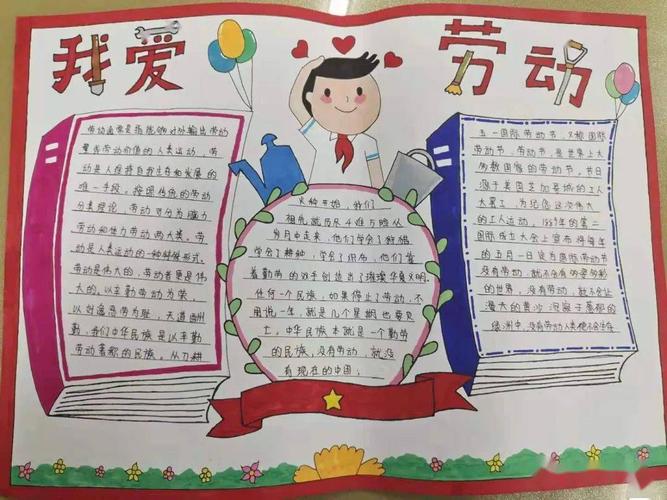 我爱
劳动
劳动通常是指能够对外输出劳动
量或劳动价值的人类运动，劳
动是人维持自我生存和发展的
唯一手段。按照传统的劳动
分类理论，劳动可分为脑力
劳动和体力劳动两大类。劳
动是人类运动的一种特殊形式。
劳动是伟大的，劳动者更是伟
大的。以辛勤劳动为荣，
以好逸恶劳为耻，天道酬
勤，我们中华民族是以辛勤
劳动著称的民族。从刀耕
火种开始，我们
祖先就历尽艰难与险从
岁月中走来，他们学会了狩猎
学会了耕种，学会了织布，他们靠
着勤劳的双手创造出了璀璨华夏文明。
任何一个民族，如果停止了劳动，不
用说一年，就是几个星期也要灭
亡。中华民族本就是一个勤劳
的民族，没有劳动，就没
有现在的中国；
五一国际劳动节，又称国际
劳动节、劳动节，是世界上大
多数国家的劳动节。节日
源于美国芝加哥城的工人
大罢工，为纪念这次伟大
的工人运动，1889年的第二
国际成立大会上宣布将每年
的五月一日定为国际劳动节
没有劳动，就不会有多姿多彩
的世界，没有劳动，就不会让
漫大的黄沙
绿洲中，没有劳动人类